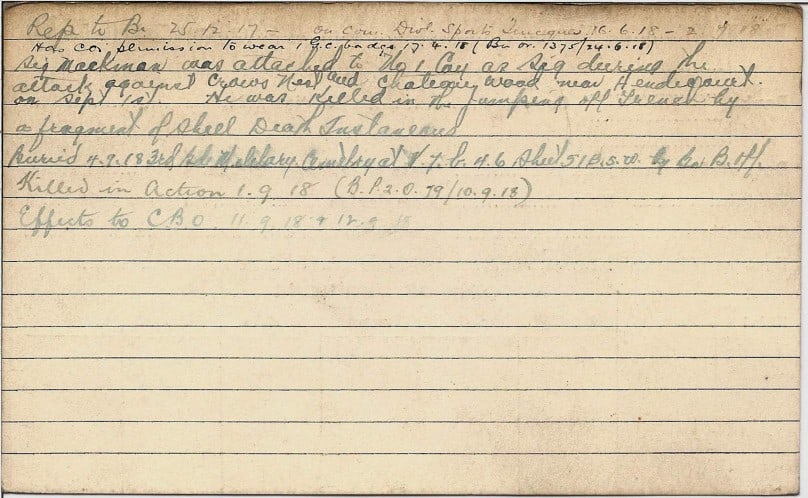 Rep to Bn 25.12.17 - on com. Divl. Sports 16.6.18 - 2
Has CO. permission to wear 1 G.C. badge 17.4.18 (Bn or. 1375/24.6.18)
Sig Mackman was attached to No 1 Coy as Sig during the
attack against Crows Nest and Chateau wood near Hendecourt.
on Sept 1st. He was killed in the jumping off Trench by
a fragment of Shell Death Instaneous
Buried 4.9.18 3rd Military Cemetery at 4.6 Sheet 51B.S.W. by B. Off.
Killed in Action 1.9.18 (B.P.2.O. 79/10.9.18)
Effects to CBO 11.9.18 & 12.9.18